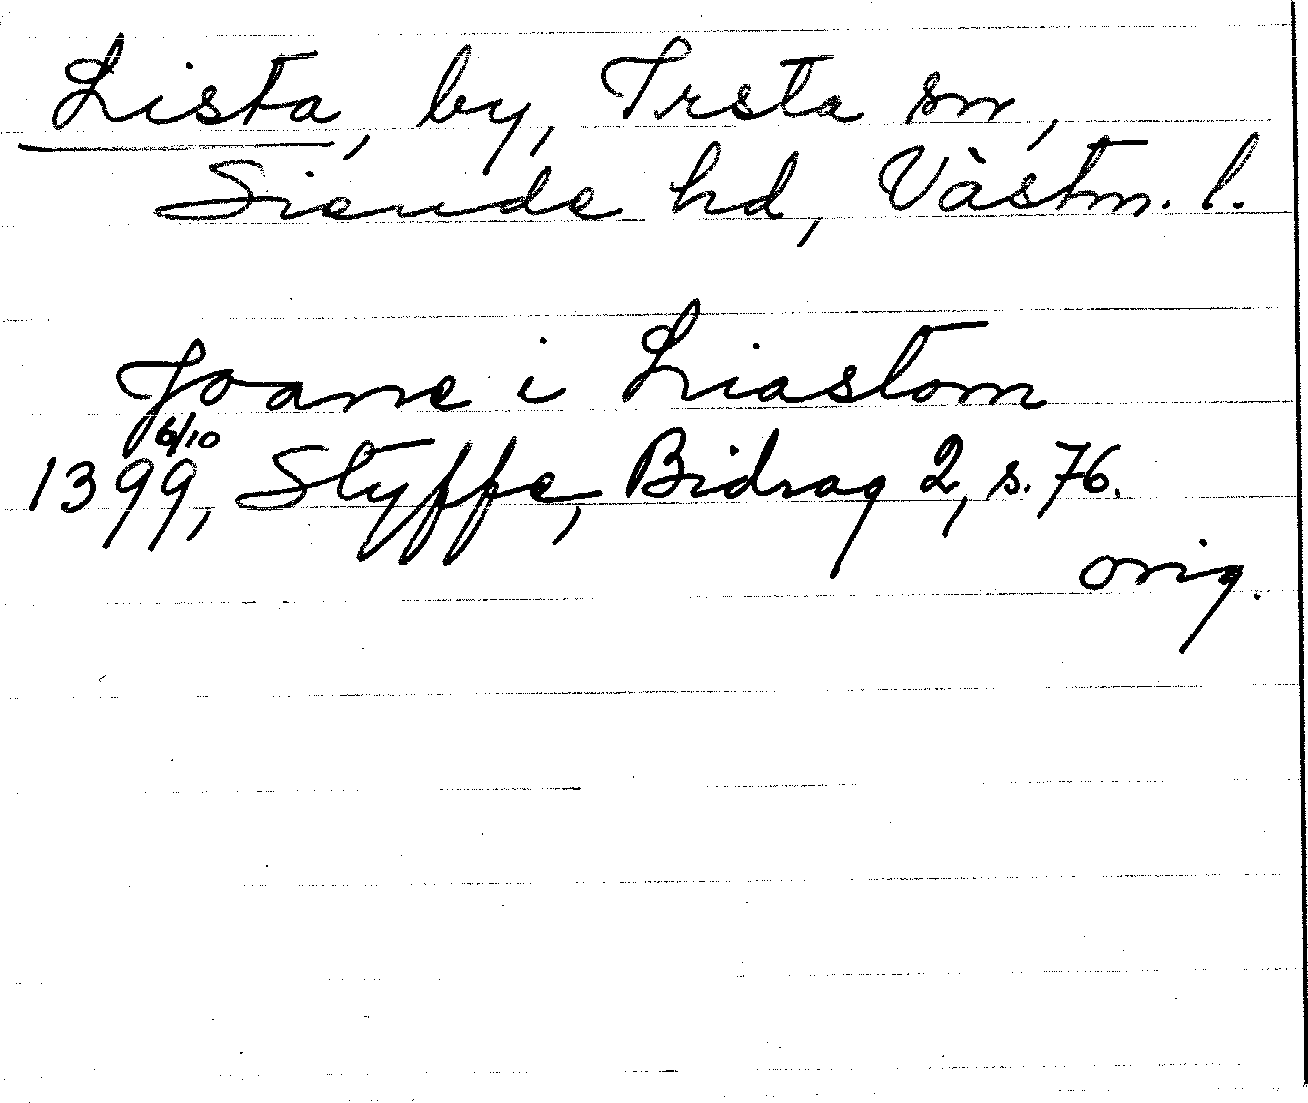 Lista, by, Irsta sn,
Siende hd, Västm. l.
Joane i Liastom
6/10
1399, Styffe, Bidrag 2, s. 76.
orig.